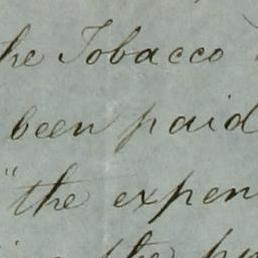 he Tobacco
been paid
"the expen
the